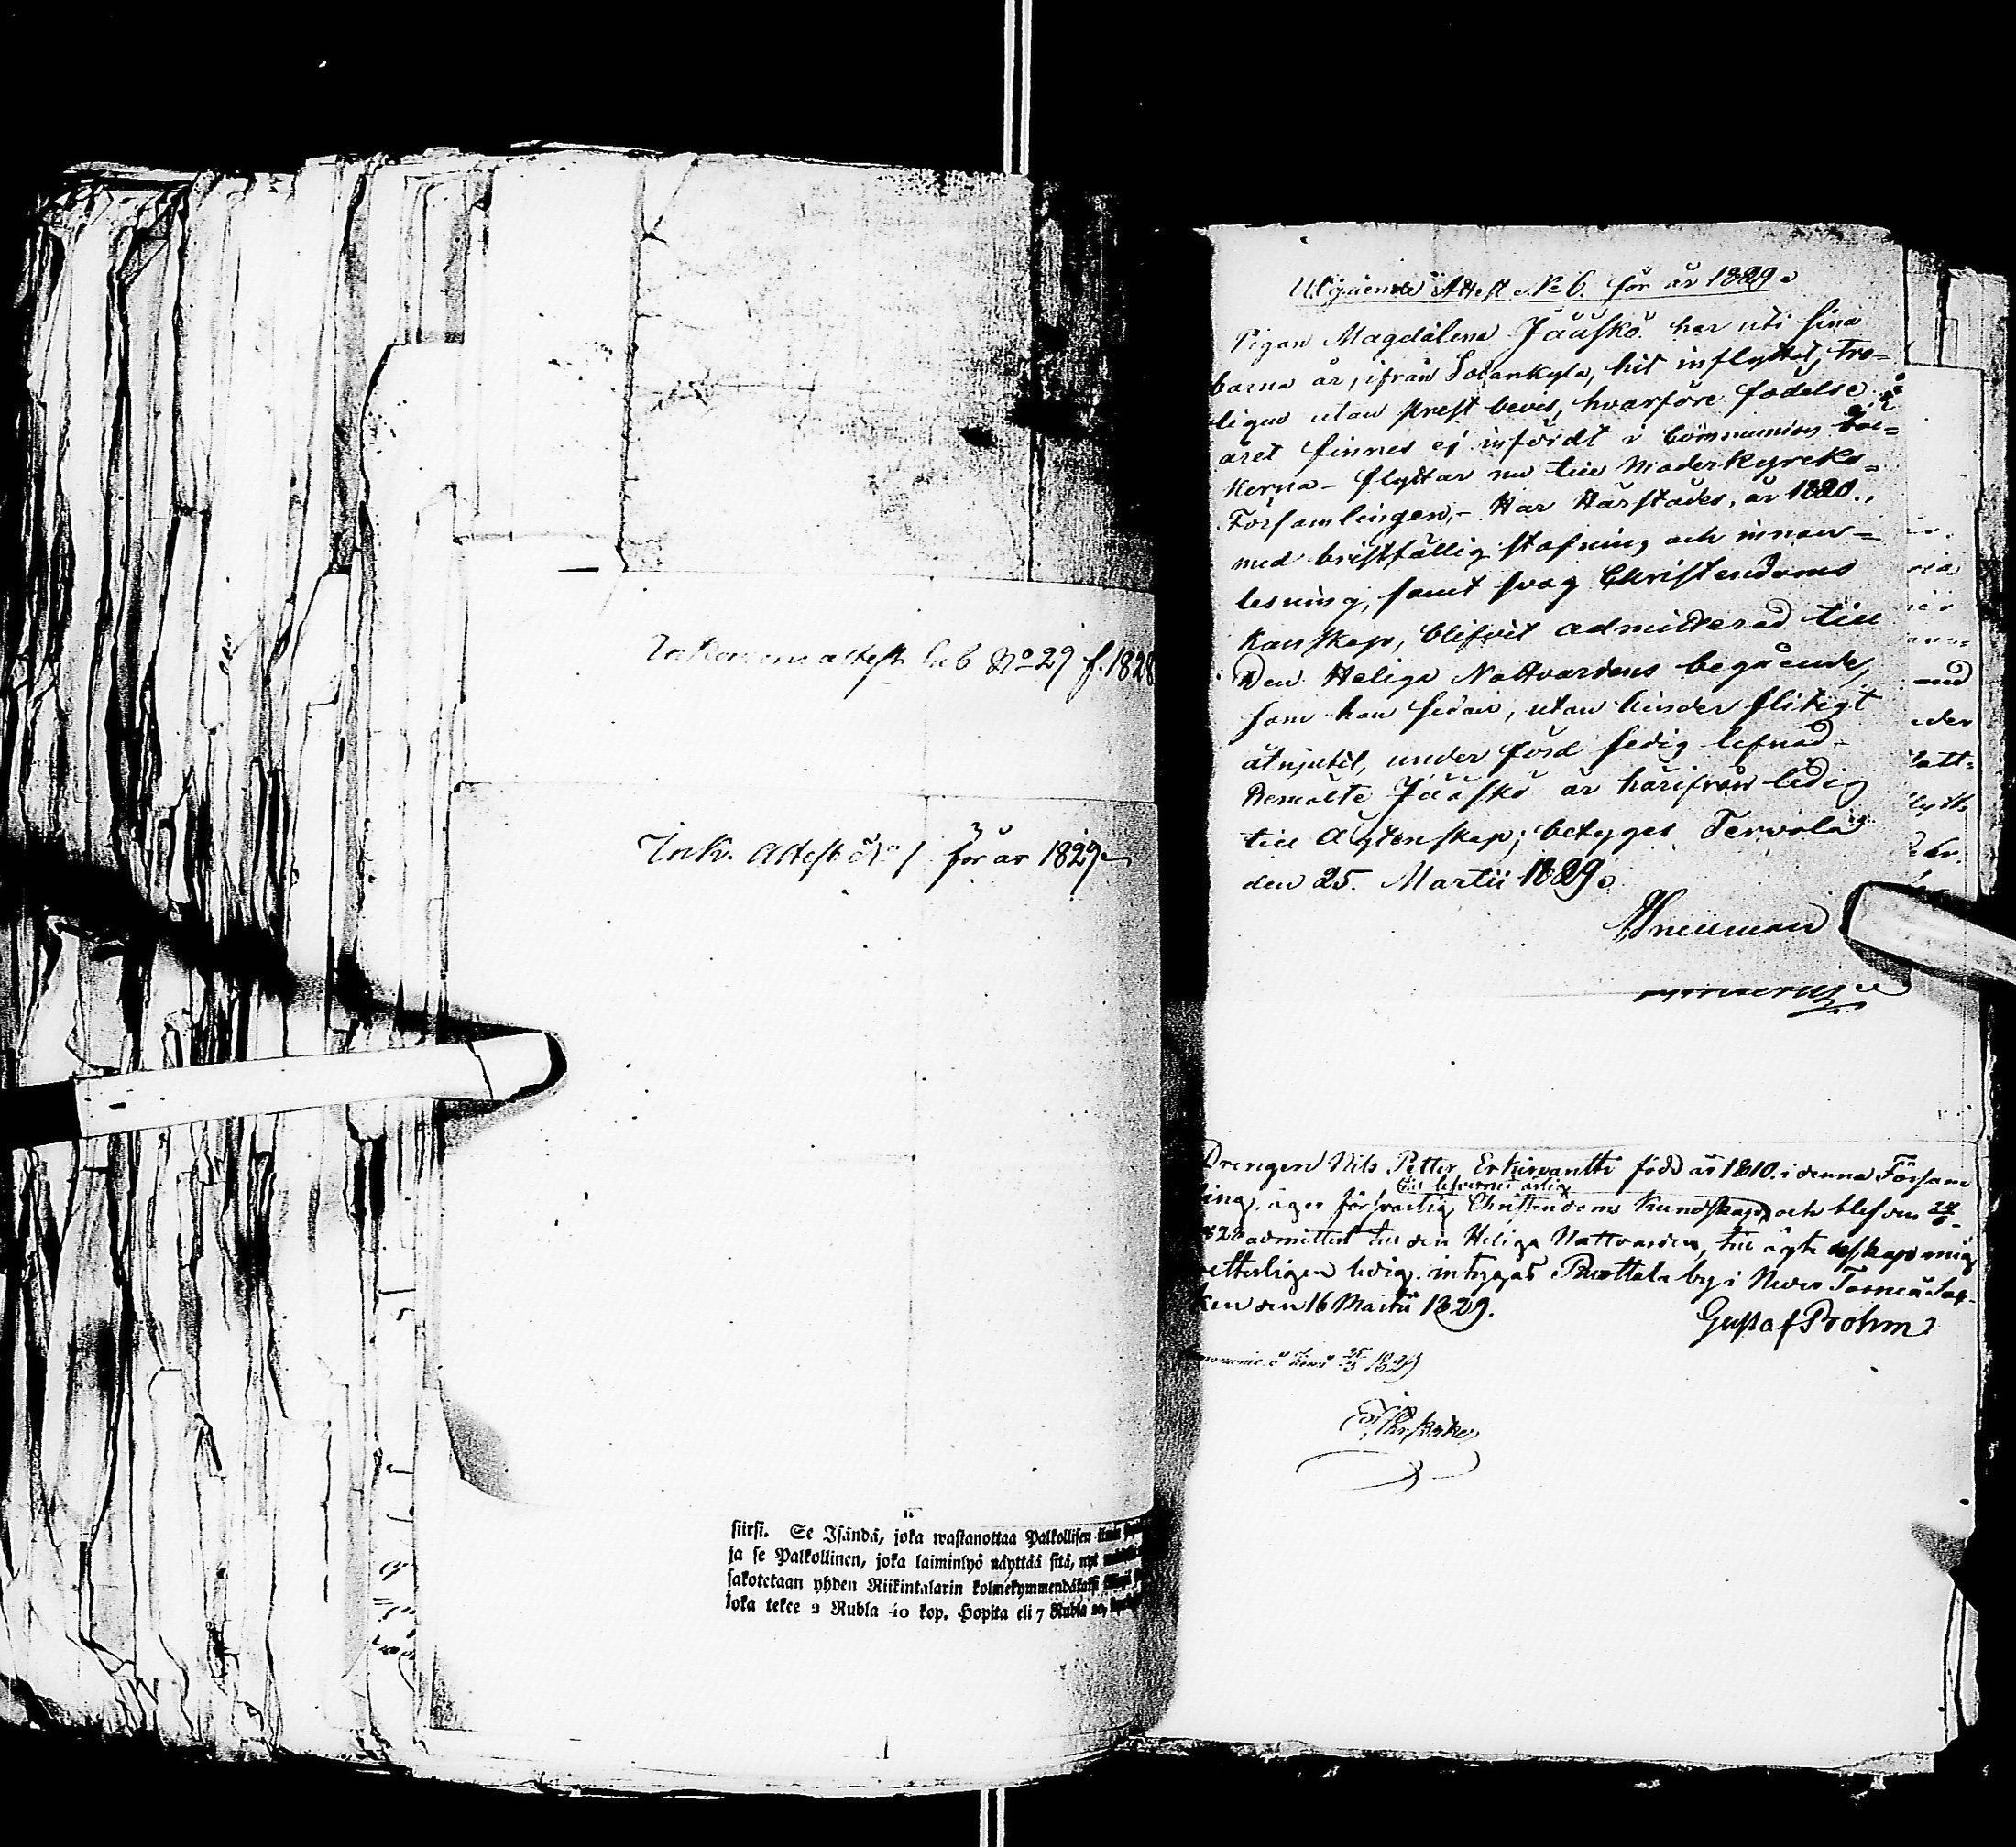 Inkommen attest sub No 29 f. 1828
Ink. Attest No 1 för år 1829
siirsi. Se Isändä, joka wastanottaa Palkollisen
ja se Palkollinen, joka laiminlyö näyttää sitä, nyt
sakotetaan yhden Riikintalarin kolmekymmendäkaksi
joka tekee 2 Rubla 40 kop. Hopita eli 7 Rubla
Utgående Attest No 6. för år 1829.
Pigan Magdalena Jääskö har uti sina
barna år, ifrån Sodankyla, hit inflyttat, tro-
ligen utan prest bevis, hvarföre födelse
året finnes ej infördt i Communion böc-
kerna - flyttar nu till Moderkyrko-
Församlingen, - Har härstädes, år 1820.,
med bristfällig stafning och innan-
lesning, samt svag Christendoms
kunskap, blifvit admitterad till
Den Heliga Nattvardens begående,
som hon sedan, utan hinder flitigt
åtnjutit, under förd sedig lefnad.
Bemälte Jääskö är härifrån ledig
till Ägtenskap; betyges Tervola
den 25. Martii 1829.
Drengen Nils Petter Erkinantti född år 1810. i denna Försam
till lefvernet ärlig
ling, äger försvarlig Christendoms Kundskap, och blef den 24/6
1828 admitterd till den Heliga Nattvarden, till ägtenskap mig
vetterligen ledig. intygas Ruottala by i Neder Torneå Sok-
ken den 16 Martii 1829.
Gustaf Brohm